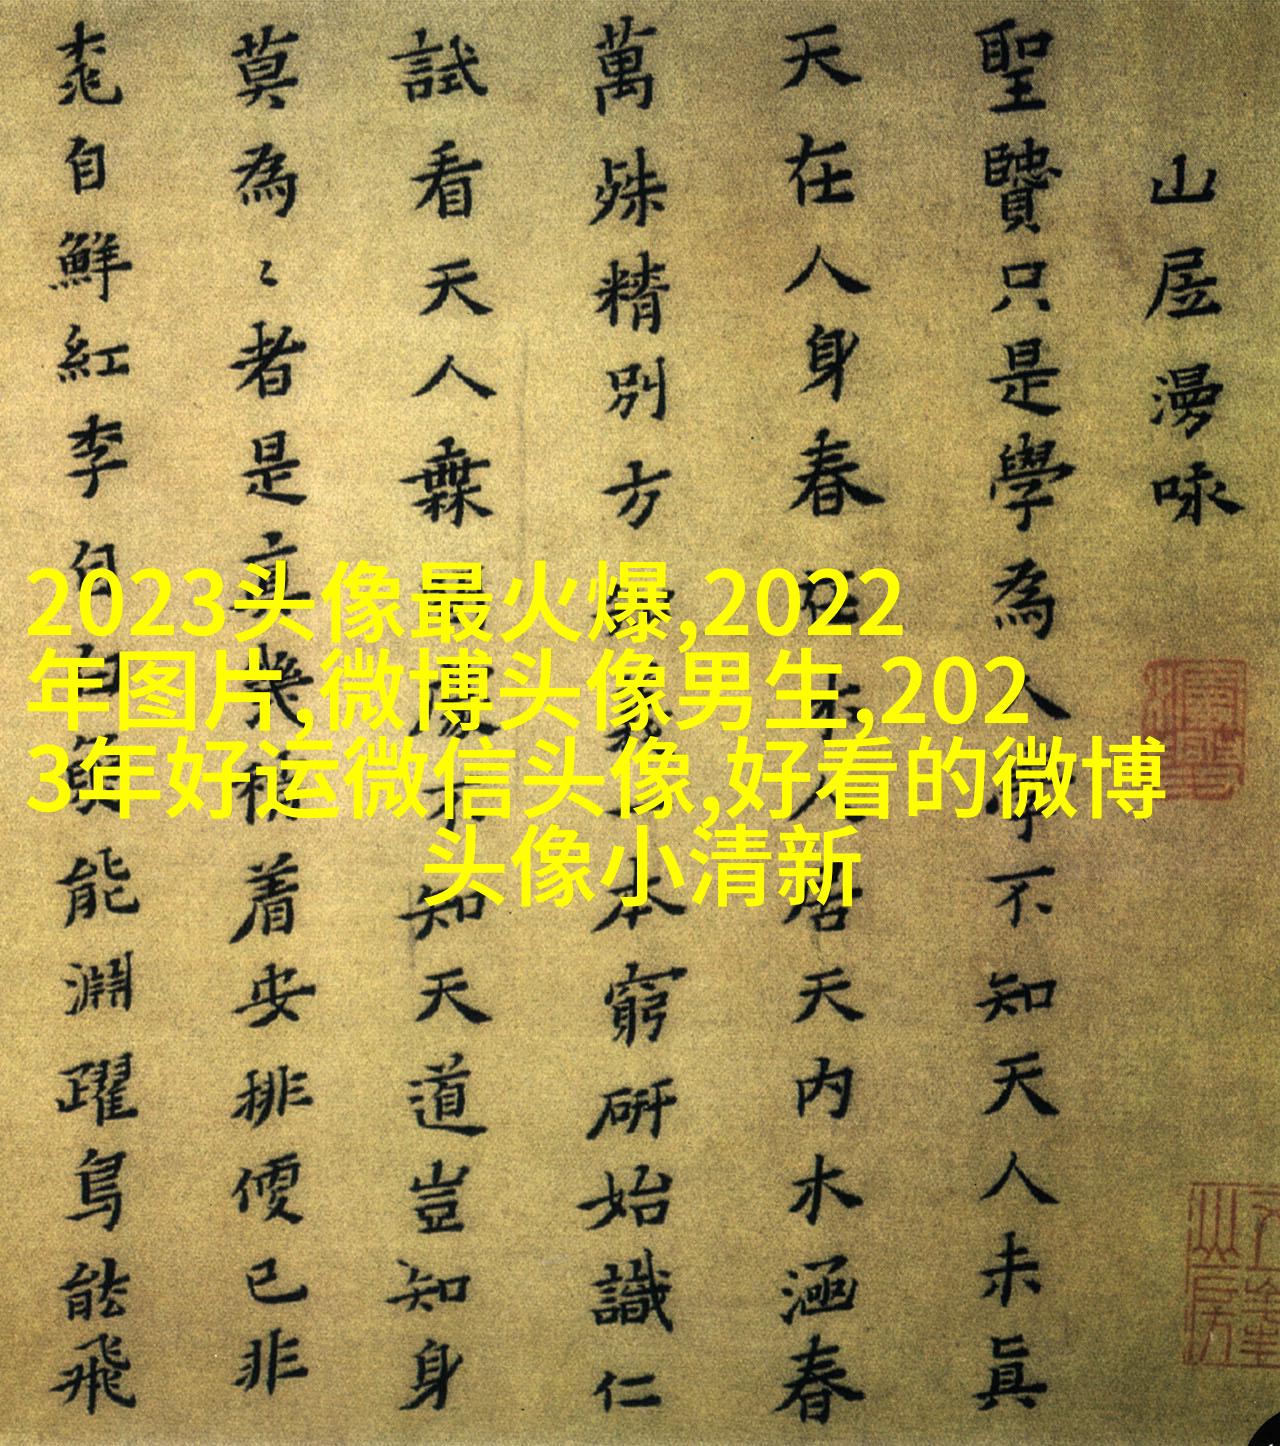 山居漫咏
聖贒只是學為人不知天人未真
天在人身春在木人居天内木涵春
萬殊精別方義一本窮研始識仁
試看天人無處知天道豈知身
莫為〻者是真樂着安排便已非
桃自鮮紅李自白魚能淵躍鳥能飛
2023头像最火爆,2022
年图片,微博头像男生,202
3年好运微信头像,好看的微博
头像小清新